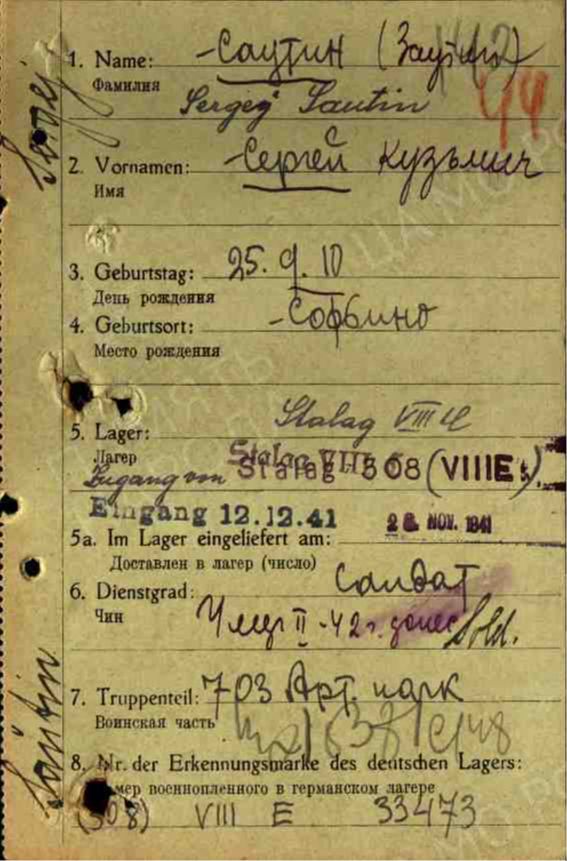 1. Name: -Саутин (Заутин)
Фамилия
Sergej Sautin
44
2. Vornamen: -Сергей Кузьмич
Имя
3. Geburtstag: 25.9.10
День рождения
4. Geburtsort: -Софьино
Место рождения
Stalag VIII
5. Lager:
Лагер
Zugang von Stalag 308 (VIIIE)
Eingang 12.12.41 NOV. 1941
5a. Im Lager eingeliefert am:
Доставлен в лагер (число)
6. Dienstgrad: Солдат
Чин
Умер II-42 г. Sold.
7. Truppenteil: 703 Арт. парк
Воинская часть
8. Nr. der Erkennungsmarke des deutschen Lagers:
Номер военнопленного в германском лагере
(308) VIII E 33473
Sergej
Sautin